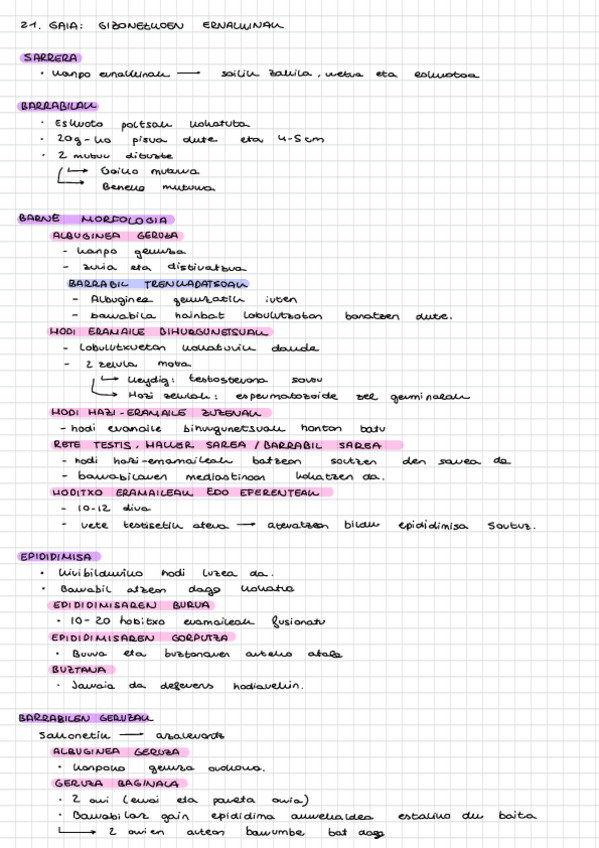 21. GAIA: GIZONEZKOEN ERNALKINAK
SARRERA
· Kanpo ernalkinak → zakila, uretra eta eskrotoa
BARRABILAK
· Eskroto poltsan kokatuta
· 20g-ko pisua dute eta 4-5 cm
· 2 mutur dituzte
→ Goiko muturra
→ Beheko muturra
BARNE MORFOLOGIA
ALBUGINEA GERUZA
- kanpo geruza
- zuria eta distiratzua
BARRABIL TRENKADATSOAK
- Albuginea geruzatik irten
- barrabila hainbat lobulutxotan banatzen dute.
HODI ERAMAILE BIHURGUNETSUAK
- lobulutxuetan kokaturik daude
- 2 zelula mota
→ Leydig: testosterona sortu
→ Hazi zelulak: espermatozoide zel germinalak
HODI HAZI-ERAMAILE ZUZENAK
- hodi eramaile bihurgunetsuak hontan batu
RETE TESTIS, HALLER SAREA / BARRABIL SAREA
- hodi hazi-emamaileak batzean sortzen den sarea da
- barrabilaren mediastinoan kokatzen da.
HODITXO ERAMAILEAK EDO EFERENTEAK
- 10-12 dira
- rete testisetik atera → ateratzean bildu epididimisa sortuz.
EPIDIDIMISA
· Kiribilduriko hodi luzea da.
· Barrabil atzean dago kokatua
EPIDIDIMISAREN BURUA
· 10-20 hoditxo eramaileak fusionatu
EPIDIDIMISAREN GORPUTZA
· Burua eta buztanaren arteko atala
BUZTANA
· Jarraia da deferens hodiarekin.
BARRABILEN GERUZAK
Sakonetik → azalerarte
ALBUGINEA GERUZA
· Kanpoko geruza sakona.
GERUZA BAGINALA
· 2 orri (errai eta pareta orria)
· Barrabilaz gain epididima aurrealdea estaliko du baita
→ 2 orrien artean barrunbe bat dago